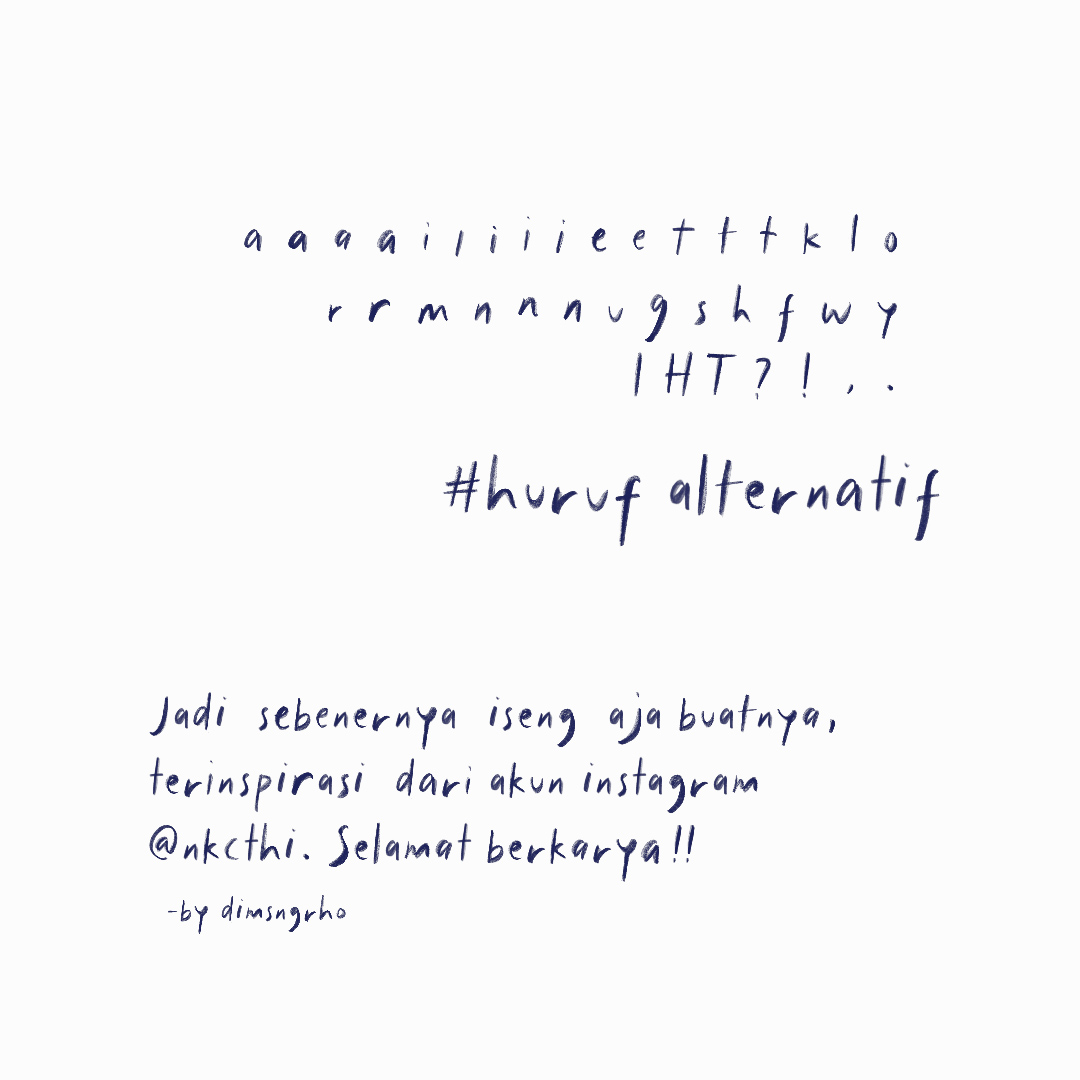 a a a a i l i i i e e t t t k l o
r r m n n n n u g s h f w y
I H T ? ! , .
#huruf alternatif
Jadi sebenernya iseng aja buatnya,
terinspirasi dari akun instagram
@nkcthi. Selamat berkarya!!
-by dimsngrho